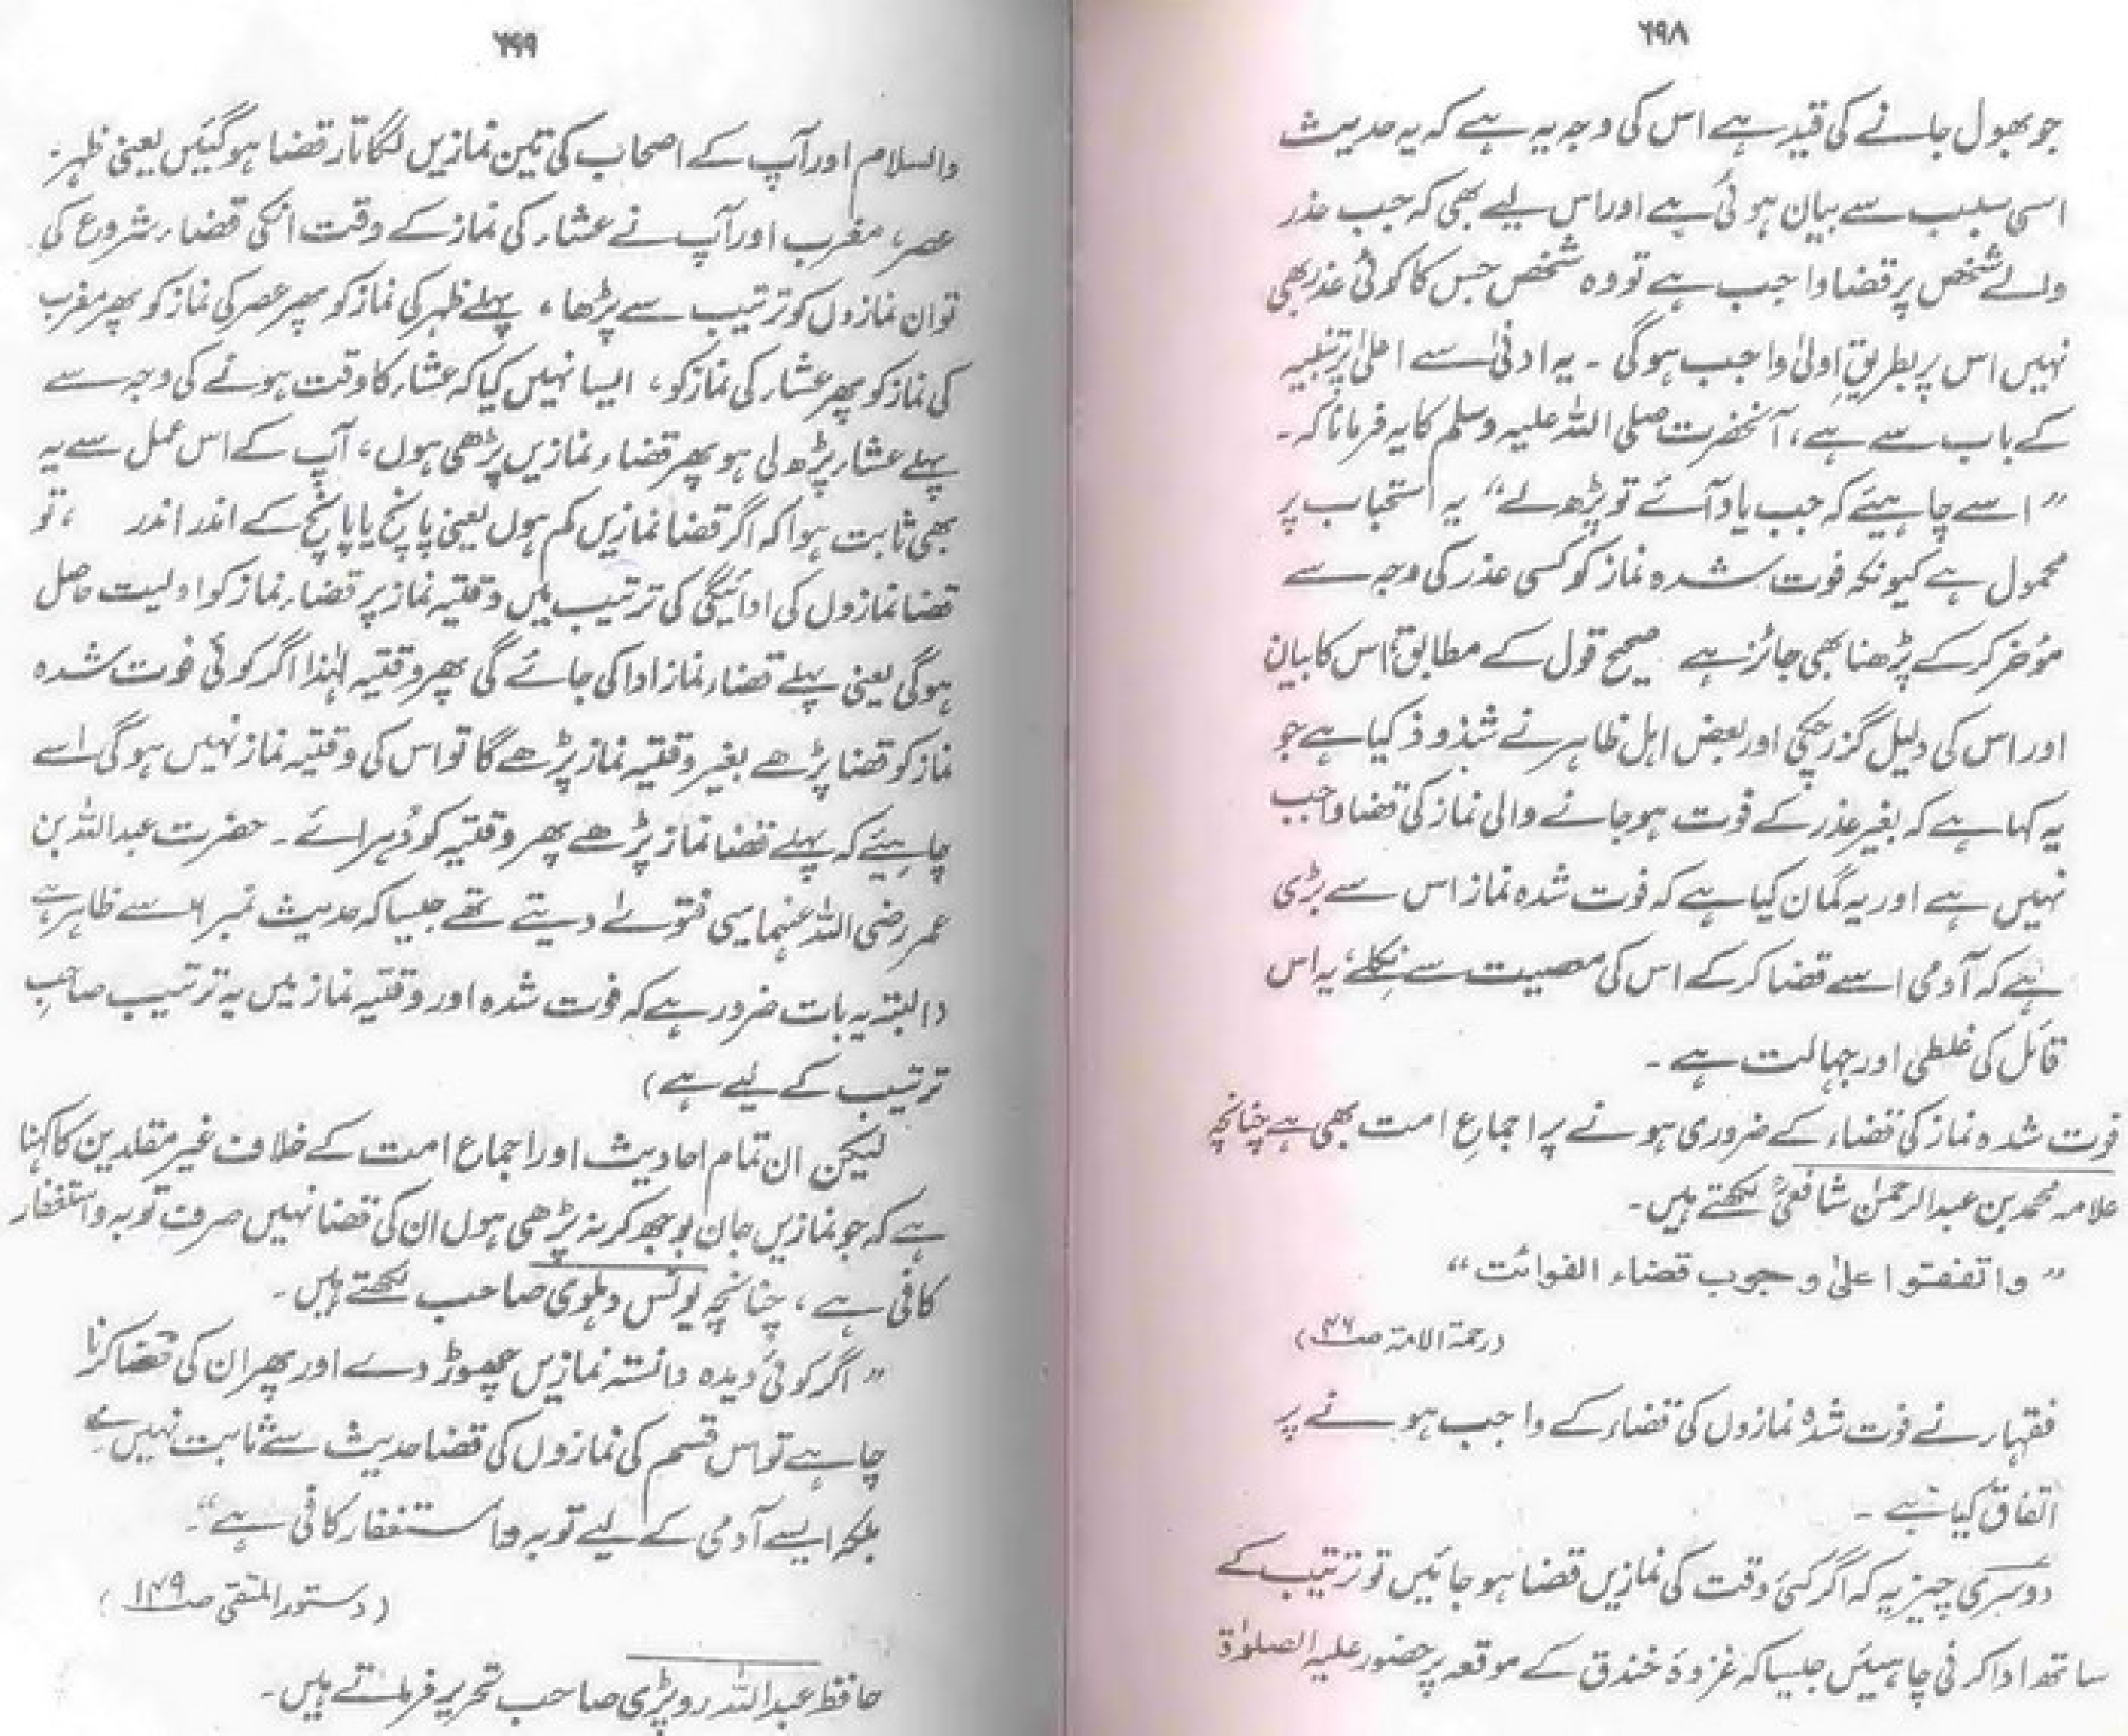 ۶۹۸
جو بھول جانے کی قید ہے اس کی وجہ یہ ہے کہ یہ حدیث
اسی سبب سے بیان ہوئی ہے اور اس لیے بھی کہ جب عذر
والے شخص پر قضا واجب ہے تو وہ شخص جس کا کوئی عذر بھی
نہیں اس پر بطریقِ اولیٰ واجب ہوگی ۔ یہ ادنیٰ سے اعلیٰ پر تنبیہ
کے باب سے ہے ، آنحضرت صلی اللہ علیہ وسلم کا یہ فرمانا کہ ۔
” اسے چاہیئے کہ جب یاد آئے تو پڑھ لے “ یہ استحباب پر
محمول ہے کیونکہ فوت شدہ نماز کو کسی عذر کی وجہ سے
مؤخر کر کے پڑھنا بھی جائز ہے صحیح قول کے مطابق، اس کا بیان
اور اس کی دلیل گزر چکی اور بعض اہل ظاہر نے شذوذ کیا ہے جو
یہ کہا ہے کہ بغیر عذر کے فوت ہو جانے والی نماز کی قضا واجب
نہیں ہے اور یہ گمان کیا ہے کہ فوت شدہ نماز اس سے بڑی
ہے کہ آدمی اسے قضا کر کے اس کی مصیبت سے نکلے ، یہ اس
قائل کی غلطی اور جہالت ہے ۔
فوت شدہ نماز کی قضاء کے ضروری ہونے پر اجماعِ امت بھی ہے چنانچہ
علامہ محمد بن عبدالرحمٰن شافعیؒ لکھتے ہیں ۔
” واتفقوا علیٰ وجوب قضاء الفوائت “
(رحمۃ الامۃ صـ ۴۶)
فقہاء نے فوت شدہ نمازوں کی قضاء کے واجب ہونے پر
اتفاق کیا ہے ۔
دوسری چیز یہ کہ اگر کئی وقت کی نمازیں قضا ہو جائیں تو ترتیب کے
ساتھ ادا کرنی چاہئیں جیسا کہ غزوۂ خندق کے موقعہ پر حضور علیہ الصلوٰۃ
۶۹۹
والسلام اور آپ کے اصحاب کی تین نمازیں لگاتار قضا ہوگئیں یعنی ظہر ،
عصر ، مغرب اور آپ نے عشاء کی نماز کے وقت انکی قضاء شروع کی
تو ان نمازوں کو ترتیب سے پڑھا ، پہلے ظہر کی نماز کو پھر عصر کی نماز کو پھر مغرب
کی نماز کو پھر عشاء کی نماز کو ، ایسا نہیں کیا کہ عشاء کا وقت ہونے کی وجہ سے
پہلے عشاء پڑھ لی ہو پھر قضاء نمازیں پڑھی ہوں ، آپ کے اس عمل سے یہ
بھی ثابت ہوا کہ اگر قضا نمازیں کم ہوں یعنی پانچ یا پانچ کے اندر اندر ، تو
قضا نمازوں کی ادائیگی کی ترتیب میں وقتیہ نماز پر قضاء نماز کو اولیت حاصل
ہوگی یعنی پہلے قضاء نماز ادا کی جائے گی پھر وقتیہ لہٰذا اگر کوئی فوت شدہ
نماز کو قضا پڑھے بغیر وقتیہ نماز پڑھے گا تو اس کی وقتیہ نماز نہیں ہوگی اسے
چاہیئے کہ پہلے قضا نماز پڑھے پھر وقتیہ کو دُہرائے ۔ حضرت عبداللہ بن
عمر رضی اللہ عنہما یہی فتوےٰ دیتے تھے جیسا کہ حدیث نمبر ۶ سے ظاہر ہے
(البتہ یہ بات ضرور ہے کہ فوت شدہ اور وقتیہ نماز میں یہ ترتیب صاحبِ
ترتیب کے لیے ہے)
لیکن ان تمام احادیث اور اجماع امت کے خلاف غیر مقلدین کا کہنا
ہے کہ جو نمازیں جان بوجھ کر نہ پڑھی ہوں ان کی قضا نہیں صرف توبہ واستغفار
کافی ہے ، چنانچہ یونس دہلوی صاحب لکھتے ہیں ۔
” اگر کوئی دیدہ دانستہ نمازیں چھوڑ دے اور پھر ان کی قضا کرنا
چاہے تو اس قسم کی نمازوں کی قضا حدیث سے ثابت نہیں ہے
بلکہ ایسے آدمی کے لیے توبہ واستغفار کافی ہے “۔
(دستور المتقی صـ ۱۴۹)
حافظ عبداللہ روپڑی صاحب تحریر فرماتے ہیں ۔